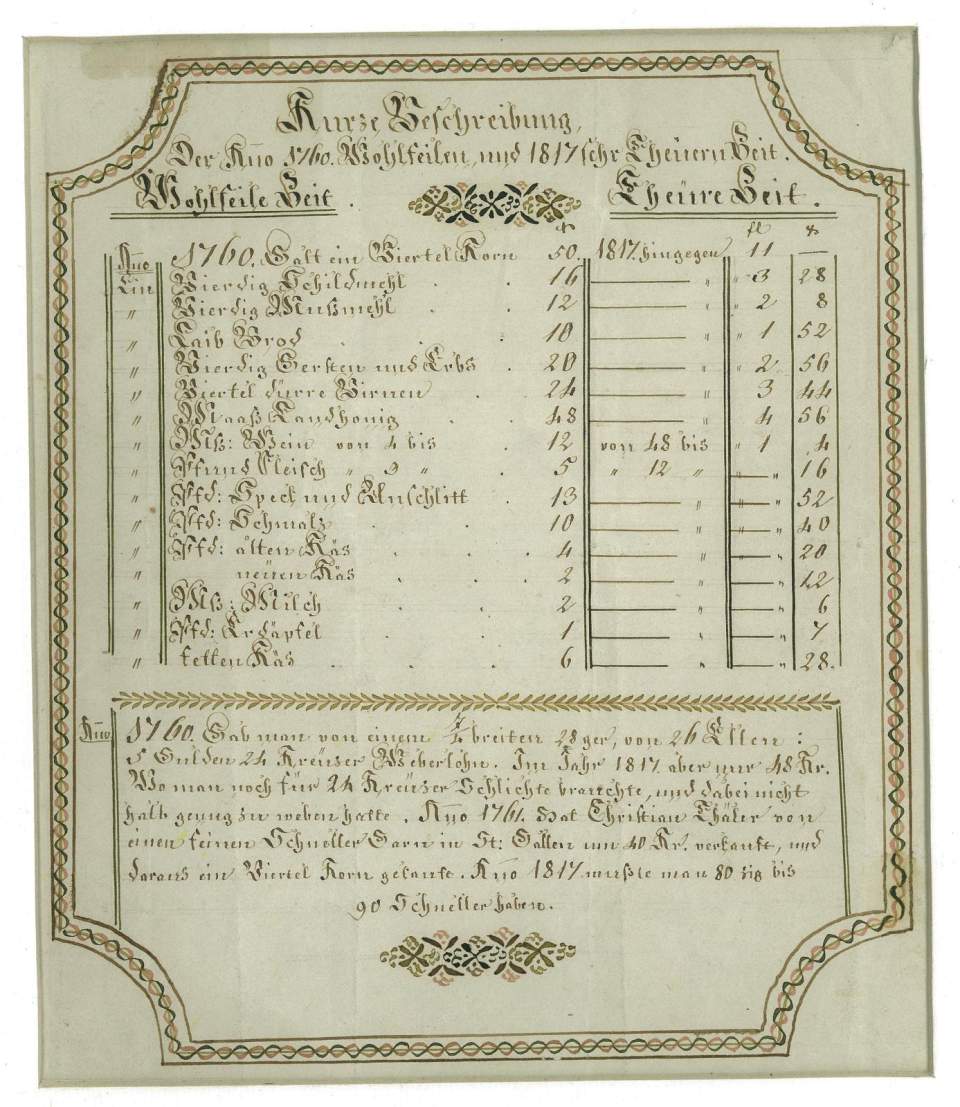 Kurze Beschreibung,
Der Anno 1760. Wohlfeilen, und 1817 sehr Theüern Zeit.
Wohlfeile Zeit. Theüre Zeit.
xr fl xr
Anno 1760. Galt ein Viertel Korn 50. 1817. hingegen 11 —
Ein Vierdig Schildmehl . . 16 — " " 3 28
" Vierdig Mußmehl . . 12 — " " 2 8
" Laib Brod . . . 10 — " " 1 52
" Vierdig Gersten und Erbs . 20 — " " 2 56
" Viertel dürre Birnen . . 24 — " 3 44
" Maaß Landhonig . . 48 — " " 4 56
" Mß: Wein von 4 bis . 12 von 48 bis " 1 4
" Pfund Fleisch " 3 " . 5 " 12 " — " 16
" Pfd: Speck und Unschlitt . 13 — " — " 52
" Pfd: Schmalz . . 10 — " " — " 40
" Pfd: alten Käs . . . 4 — " — " 20
" neüen Käs . . . 2 — " — " 12
" Mß: Milch . . 2 — " — " 6
" Pfd: Erdäpfel . . 1 — " — " 7
" fetten Käs . . . 6 — " — " 28.
Anno 1760. Gab man von einem 7/4 breiten 28ger, von 26 Ellen:
5 Gulden 24 Kreüzer Weberlohn. Im Jahr 1817. aber nur 48 Kr.
Wo man noch für 24 Kreüzer Schlichte brauchte, und dabei nicht
halb genug zu weben hatte. Anno 1761. Hat Christian Thäler von
einen feinen Schneller Garn in St: Gallen um 40 Kr. verkauft, und
daraus ein Viertel Korn gekauft. Anno 1817. mußte man 80 zig bis
90 Schneller haben.